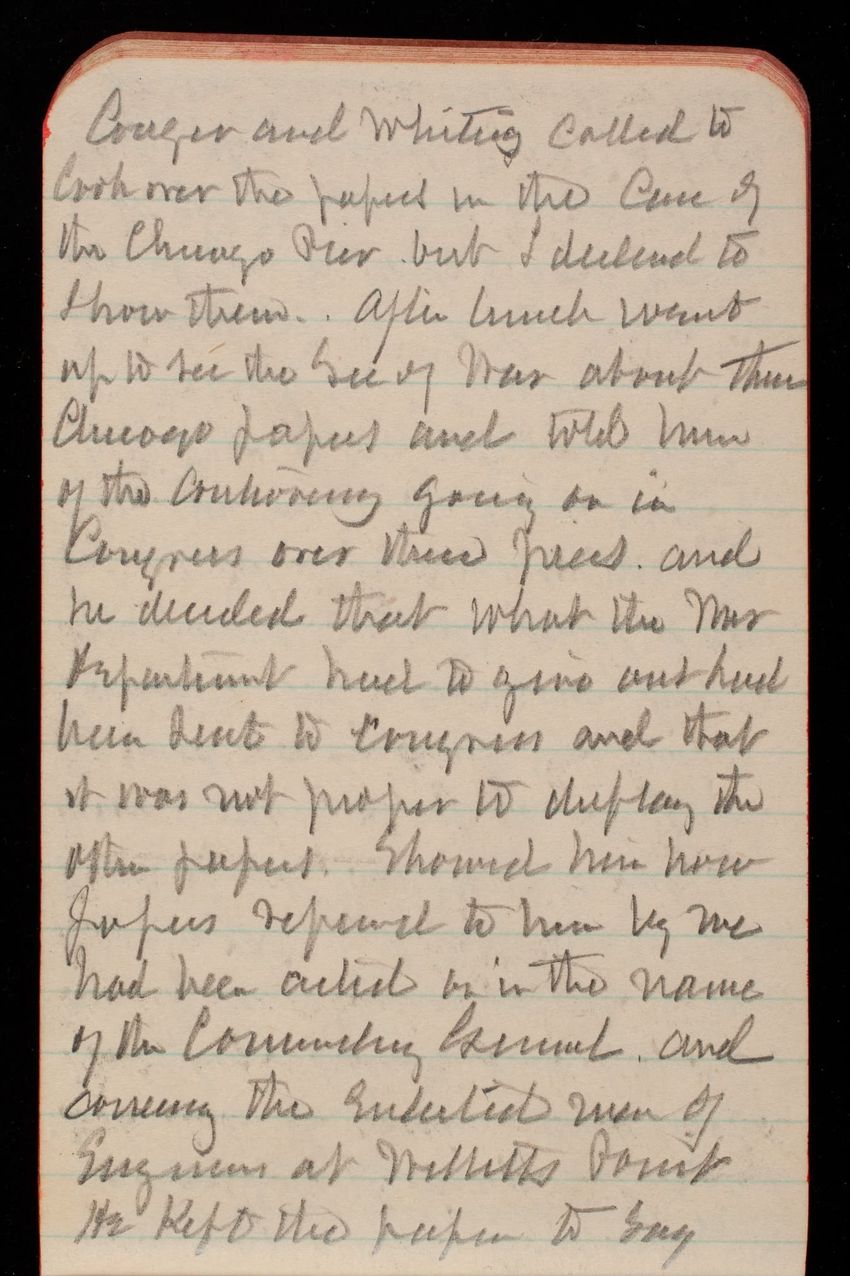 Conger and Whiting called to
look over the papers in the Case of
the Chicago Pier but I declined to
show them.. After lunch went
up to see the Sec of War about these
Chicago papers and told him
of the controversy going on in
Congress over these piers. and
he decided that what the War
Department had to give out had
been sent to Congress and that
it was not proper to display the
other papers. Showed him how
papers referred to him by me
had been acted on in the name
of the Commanding General. and
the Enlisted men of
Engineers at Willetts Point
He Kept the paper to say